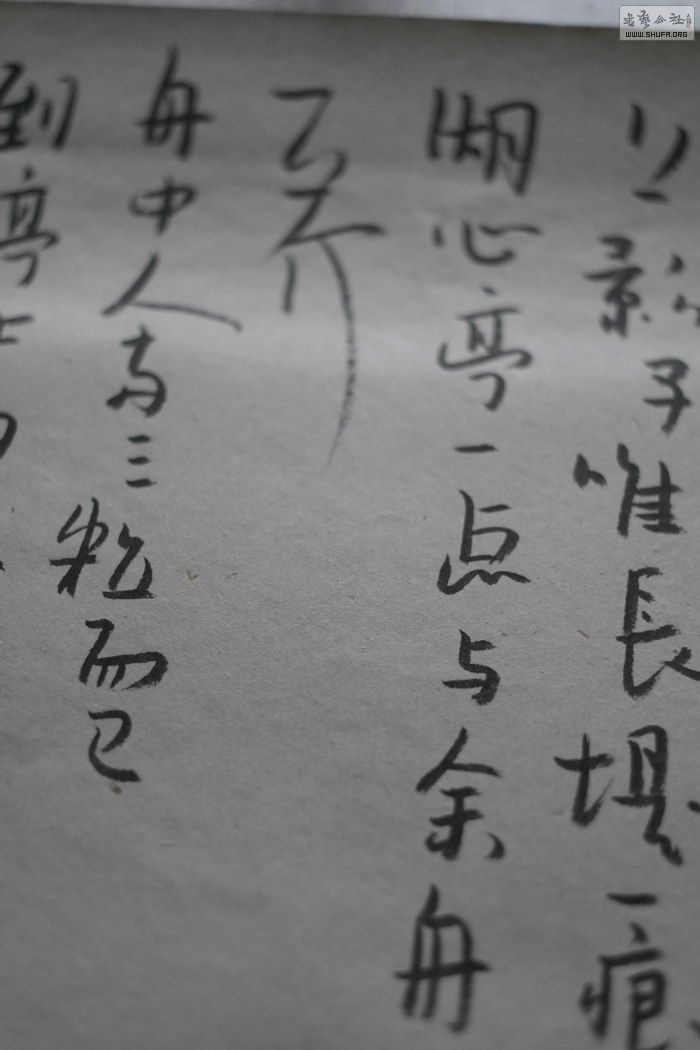 上影子唯長堤一痕
湖心亭一点与余舟
一芥
舟中人两三粒而已
到亭上
书艺公社
WWW.SHUFA.ORG